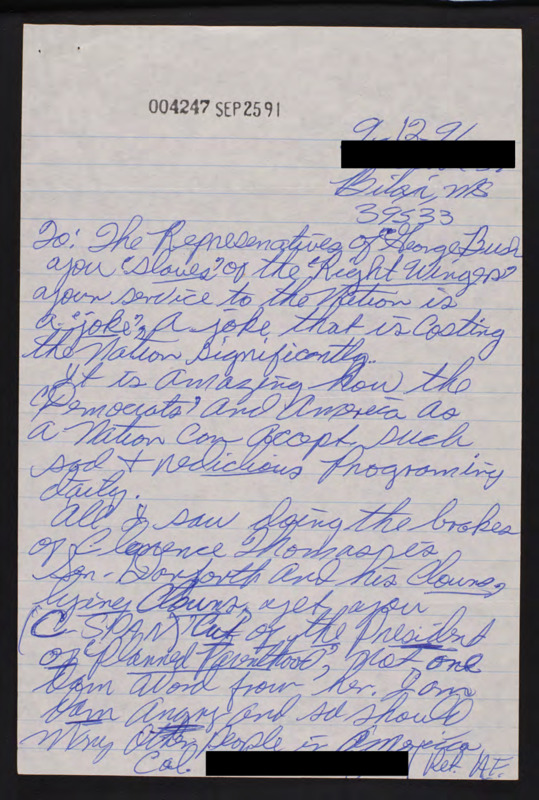 004247 SEP 25 91
9-12-91
Biloxi, MS
39533
To: The Representatives of "George Bush
you "slaves" of the "Right Wingers"
your service to the Nation is
a "joke", a joke that is costing
the Nation significantly.
It is amazing how the
"Democrats" and America as
a Nation can accept such
sad + rediclious programing
daily.
All I saw doing the brakes
of Clarence Thomas is
Sen. Danforth and his Clowns,
lying Clowns, yet you
(C-SPAN) Cut of the President
of "Planned Parenthood", not one
dam word from her. I am
dam angry and so should
many other people in America,
Col. Ret. AF.